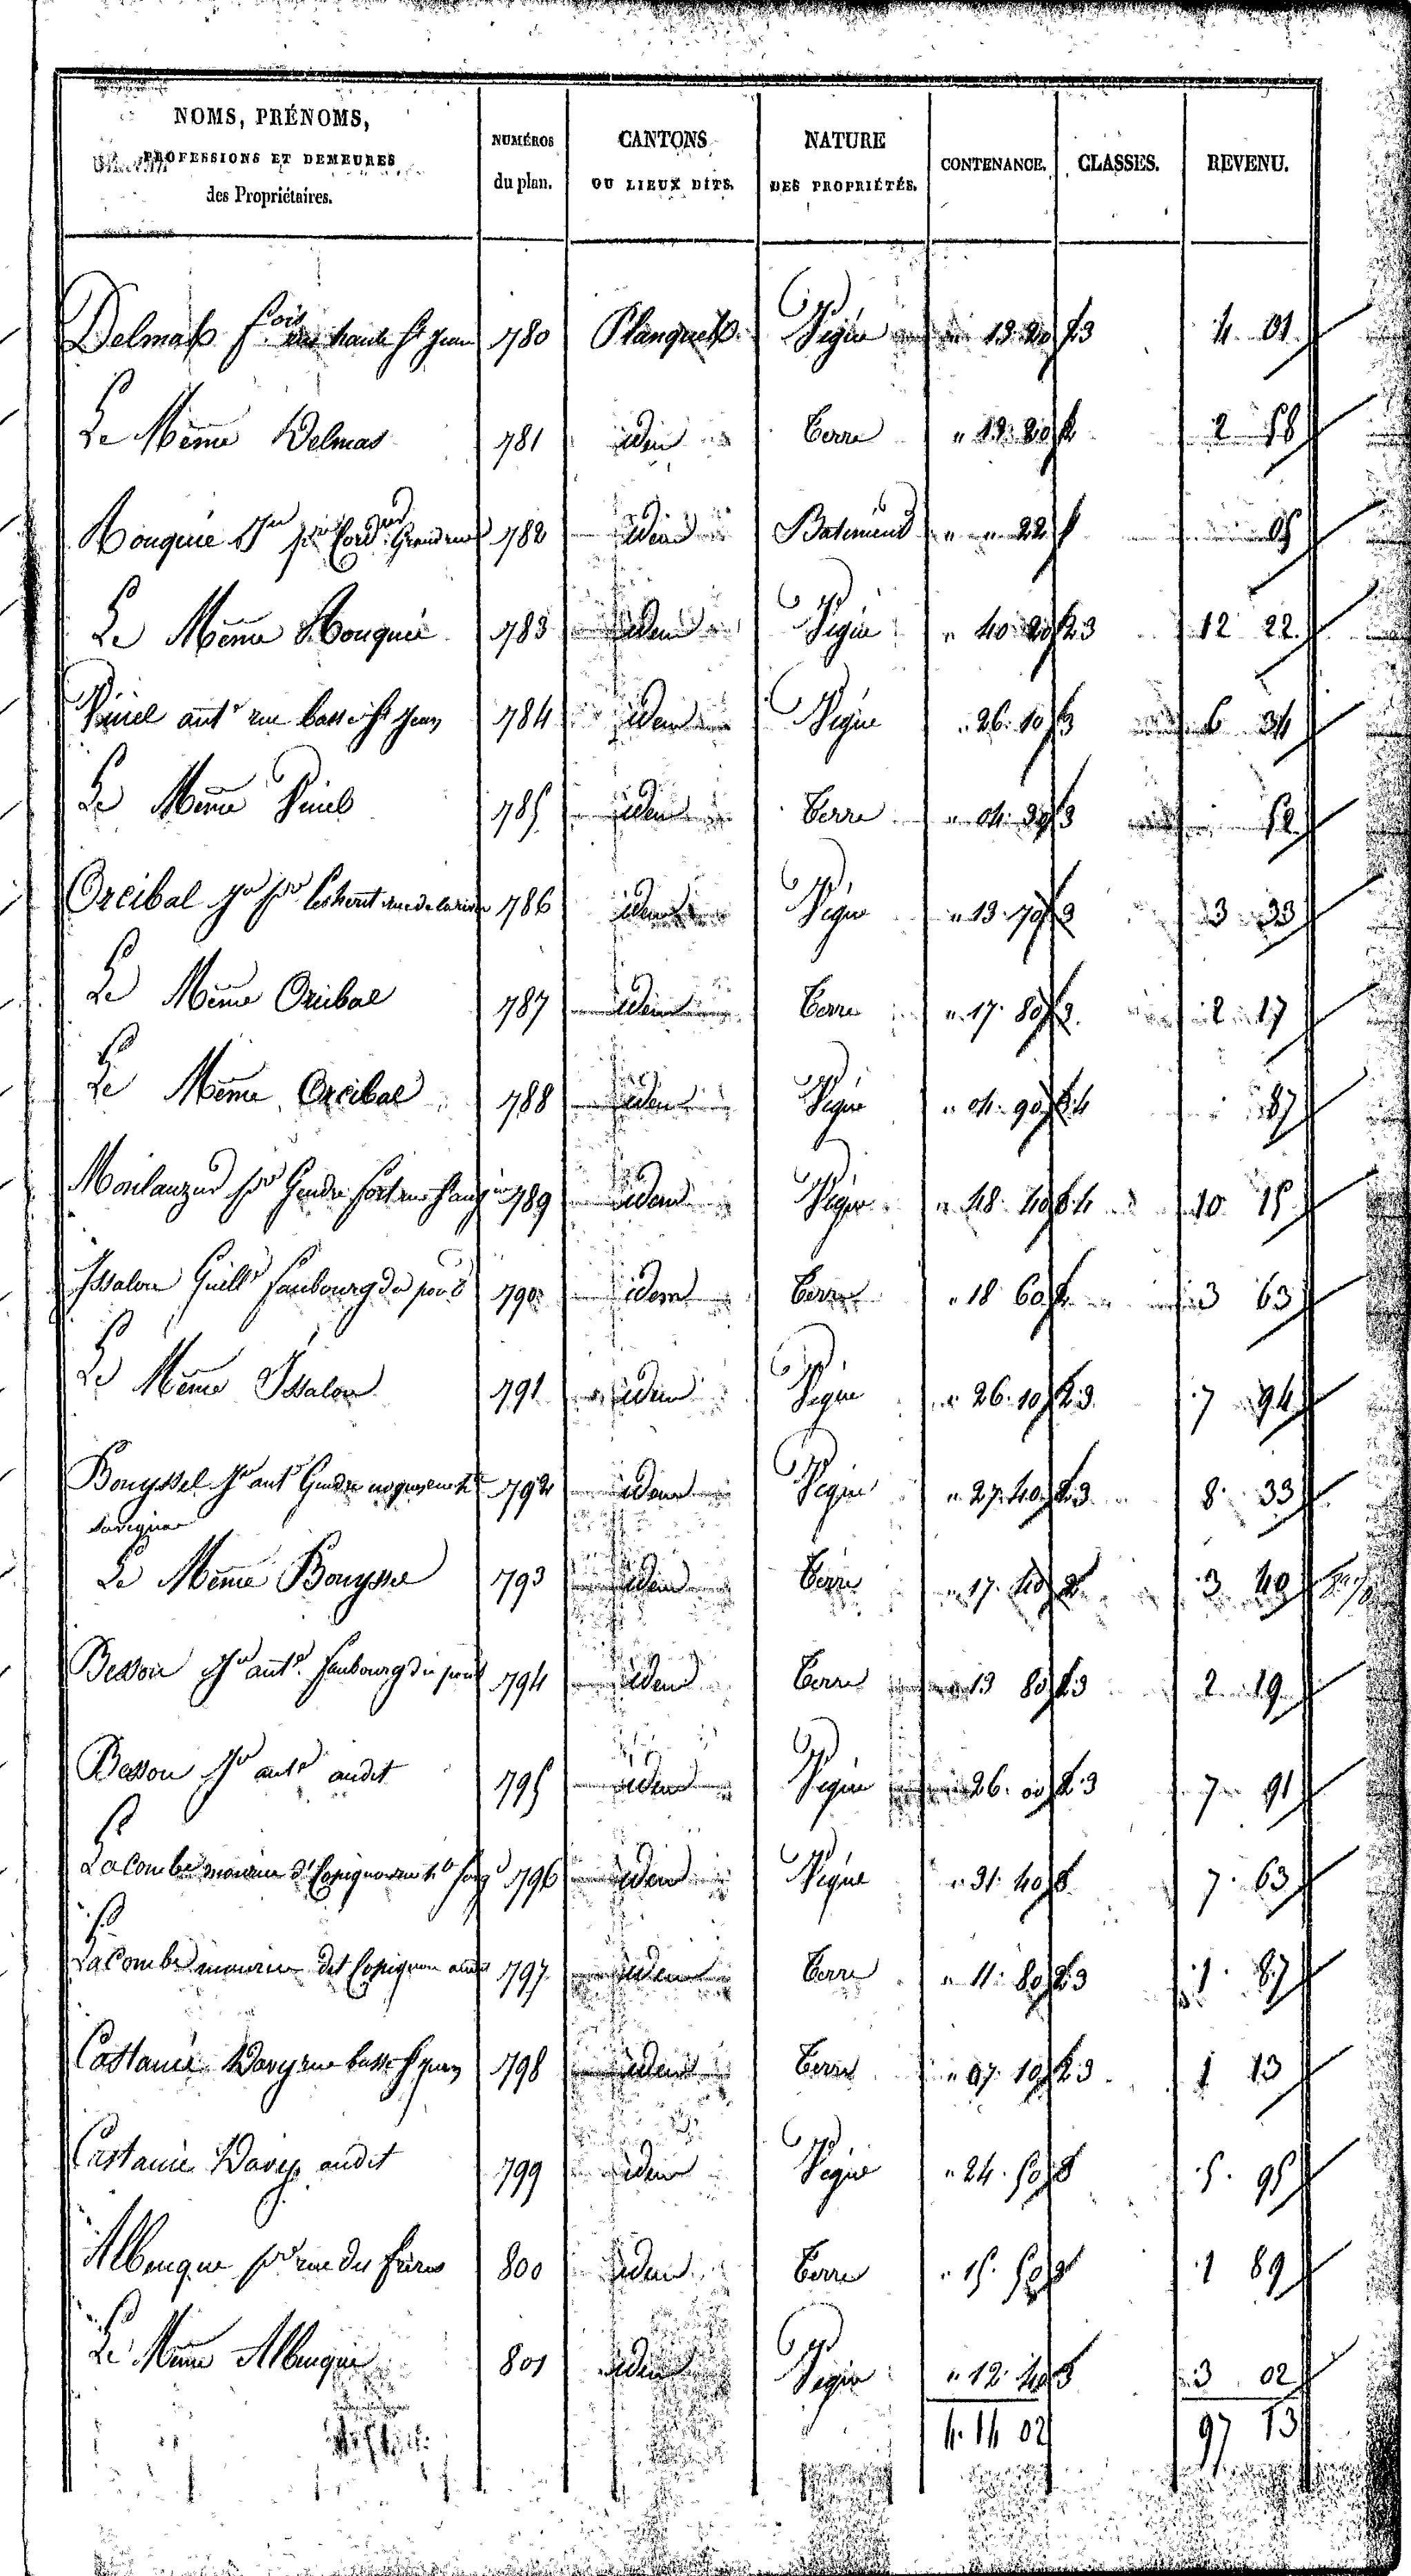 NOMS, PRÉNOMS,
PROFESSIONS ET DEMEURES
des Propriétaires.
NUMÉROS
du plan.
CANTONS
OU LIEUX DITS.
NATURE
DES PROPRIÉTÉS.
CONTENANCE.
CLASSES.
REVENU.
Delmas fois rue haute St Jean 780 Planques Vigne 13 20 2.3 4. 01
Le Même Delmas 781 idem Terre " 13. 20 2 2 58
Rouquié 782 idem Batiment " " 22 05
Le Même Rouquié 783 idem Vigne " 40 20 2.3 12 22
Viniel ante rue basse St Jean 784 idem Vigne " 26. 10 3 6 34
Le Même Viniel 785 idem Terre " 04. 30 3 52
Orcibal 786 idem Vigne " 13. 70 3 3 33
Le Même Orcibal 787 idem Terre " 17. 80 3 2 17
Le Même Orcibal 788 idem Vigne " 04. 90 3.4 87
789 idem Vigne " 48. 40 3.4 10 15
Issalon Guille Faubourg du pont 790 idem Terre " 18 60 2 3 63
Le Même Issalon 791 idem Vigne " 26. 10 2.3 7 94
Bouyssel Jn ant Gendre 792 idem Vigne " 27. 40 2.3 8. 33
Savignac
Le Même Bouyssel 793 idem Terre " 17. 40 2 3 40
Besson Jn ante Faubourg du pont 794 idem Terre " 13 80 2.3 2 19
Besson Jn ante audit 795 idem Vigne " 26. 00 2.3 7 91
Lacombe maurice 796 idem Vigne " 31. 40 3 7. 63
Lacombe maurice dit Copignou audit 797 idem Terre " 11. 80 2.3 1. 87
Castanié Davy rue basse St Jean 798 idem Terre " 07. 10 2.3 1 13
Castanié Davy audit 799 idem Vigne " 24. 50 3 5. 95
Albenque pre rue des frères 800 idem Terre " 15. 50 3 1 89
Le Même Albenque 801 idem Vigne " 12. 40 3 3 02
4. 14 02 97 13